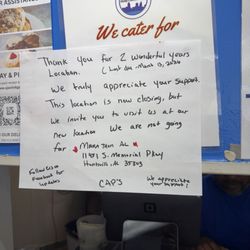 ASSISTAN
We cater for
Thank you for 2 wonderful years
Location. (Last day - March 13, 2020
We truly appreciate your support.
This location is now closing, but
We invite you to visit us at our
new location We are not going
far
S. Memorial Pkwy
Huntsville, AL 35803
Follow us on
Facebook for
updates
CAP'S
We appreciate
your support!
AY & PI
OUR DELIC